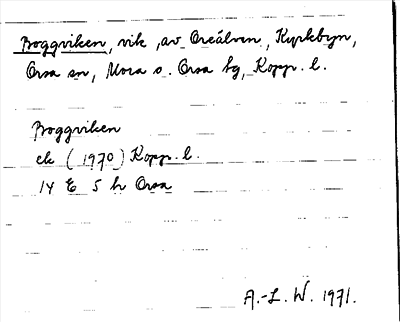 Broggviken, vik, av Oreälven, Kyrkbyn,
Orsa sn, Mora o. Orsa tg, Kopp. l.
Broggviken
ek (1970) Kopp. l.
14 E 5 h Orsa
A.-L. W. 1971.